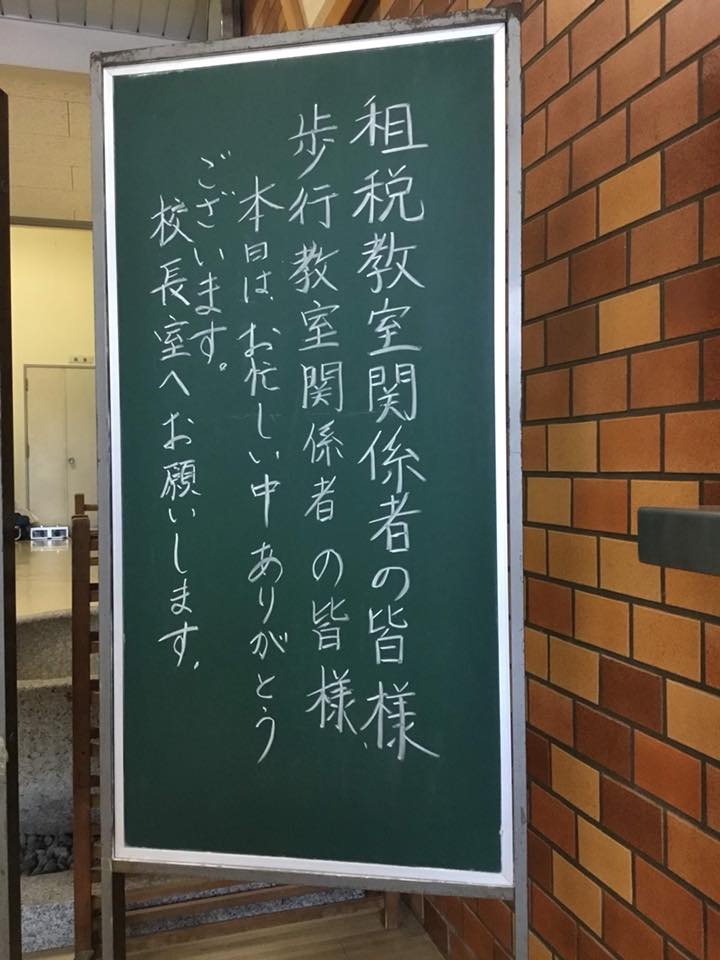 租税教室関係者の皆様
歩行教室関係者の皆様、
本日は、お忙しい中ありがとう
ございます。
校長室へお願いします。